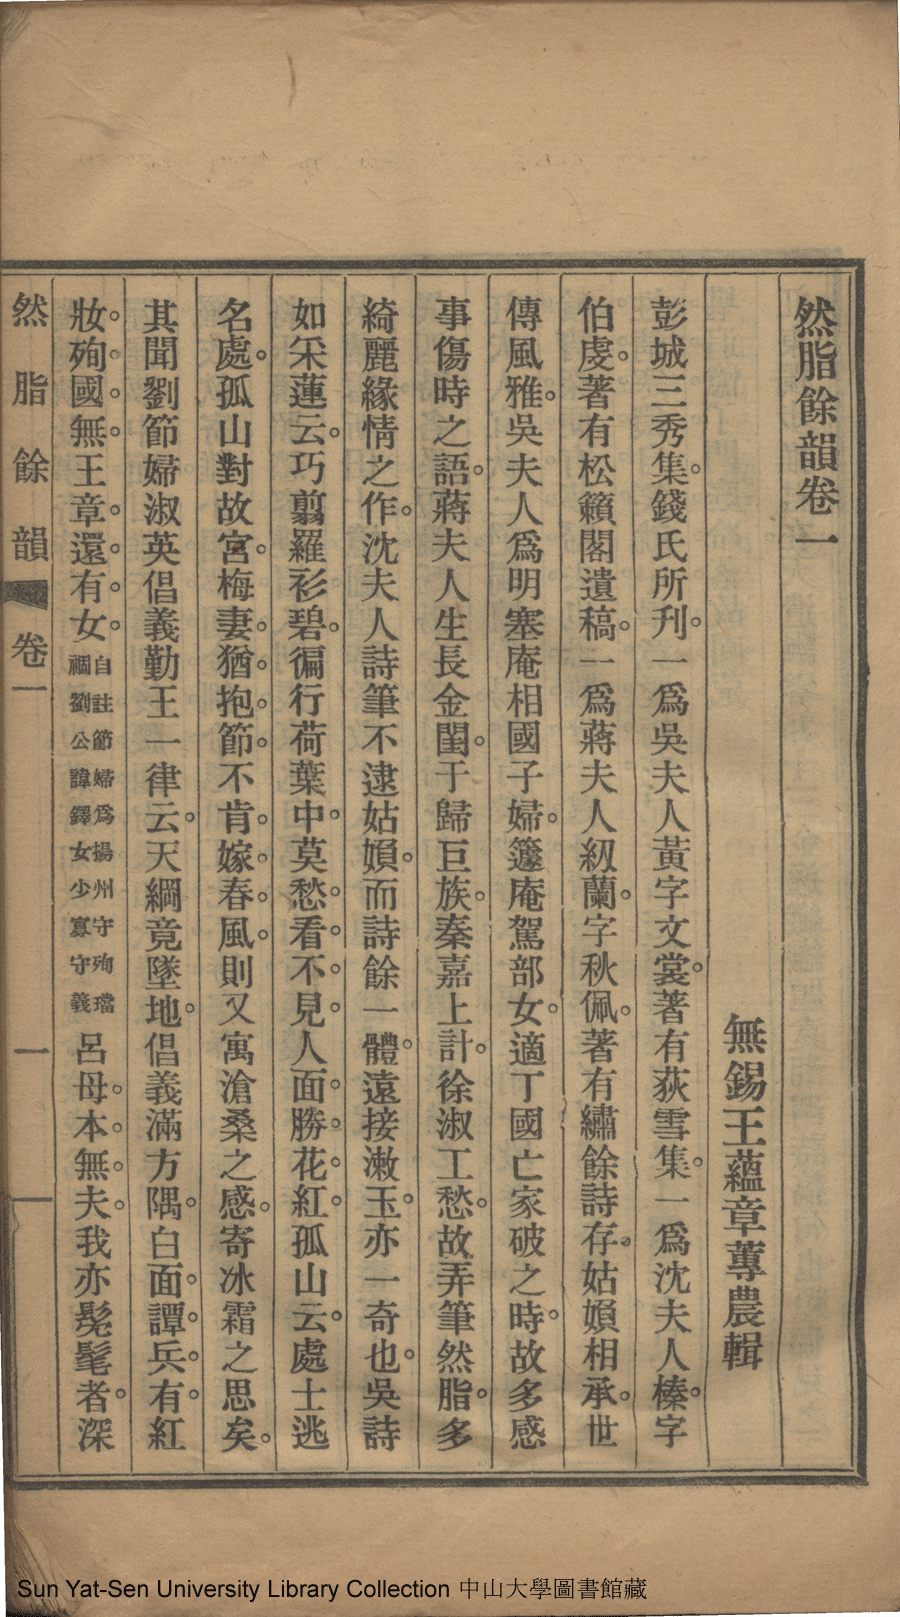 然脂餘韻卷一
無錫王蘊章蓴農輯
彭城三秀集。錢氏所刊。一爲吳夫人黃字文裳。著有荻雪集。一爲沈夫人榛。字
伯虔。著有松籟閣遺稿。一爲蔣夫人紉蘭。字秋佩。著有繡餘詩存。姑嬪相承。世
傳風雅。吳夫人爲明塞庵相國子婦。籩庵駕部女。適丁國亡家破之時。故多感
事傷時之語。蔣夫人生長金閨。于歸巨族。秦嘉上計。徐淑工愁。故弄筆然脂。多
綺麗緣情之作。沈夫人詩筆不逮姑嬪。而詩餘一體。遠接漱玉。亦一奇也。吳詩
如采蓮云。巧翦羅衫碧。徧行荷葉中。莫愁。看。不。見。人面。勝。花。紅。孤山云。處士逃
名處。孤山對故宮。梅妻。猶。抱。節。不肯。嫁。春。風。則又寓滄桑之感。寄冰霜之思矣。
其聞劉節婦淑英倡義勤王一律云。天綱竟墜地。倡義滿方隅。白面。譚。兵。有。紅
妝。殉。國。無。王章。還。有。女。自註節婦爲揚州守殉璫禍劉公諱鐸女少寡守義呂母。本。無。夫。我亦髡髦者。深
然脂餘韻 卷一 一
Sun Yat-Sen University Library Collection 中山大學圖書館藏